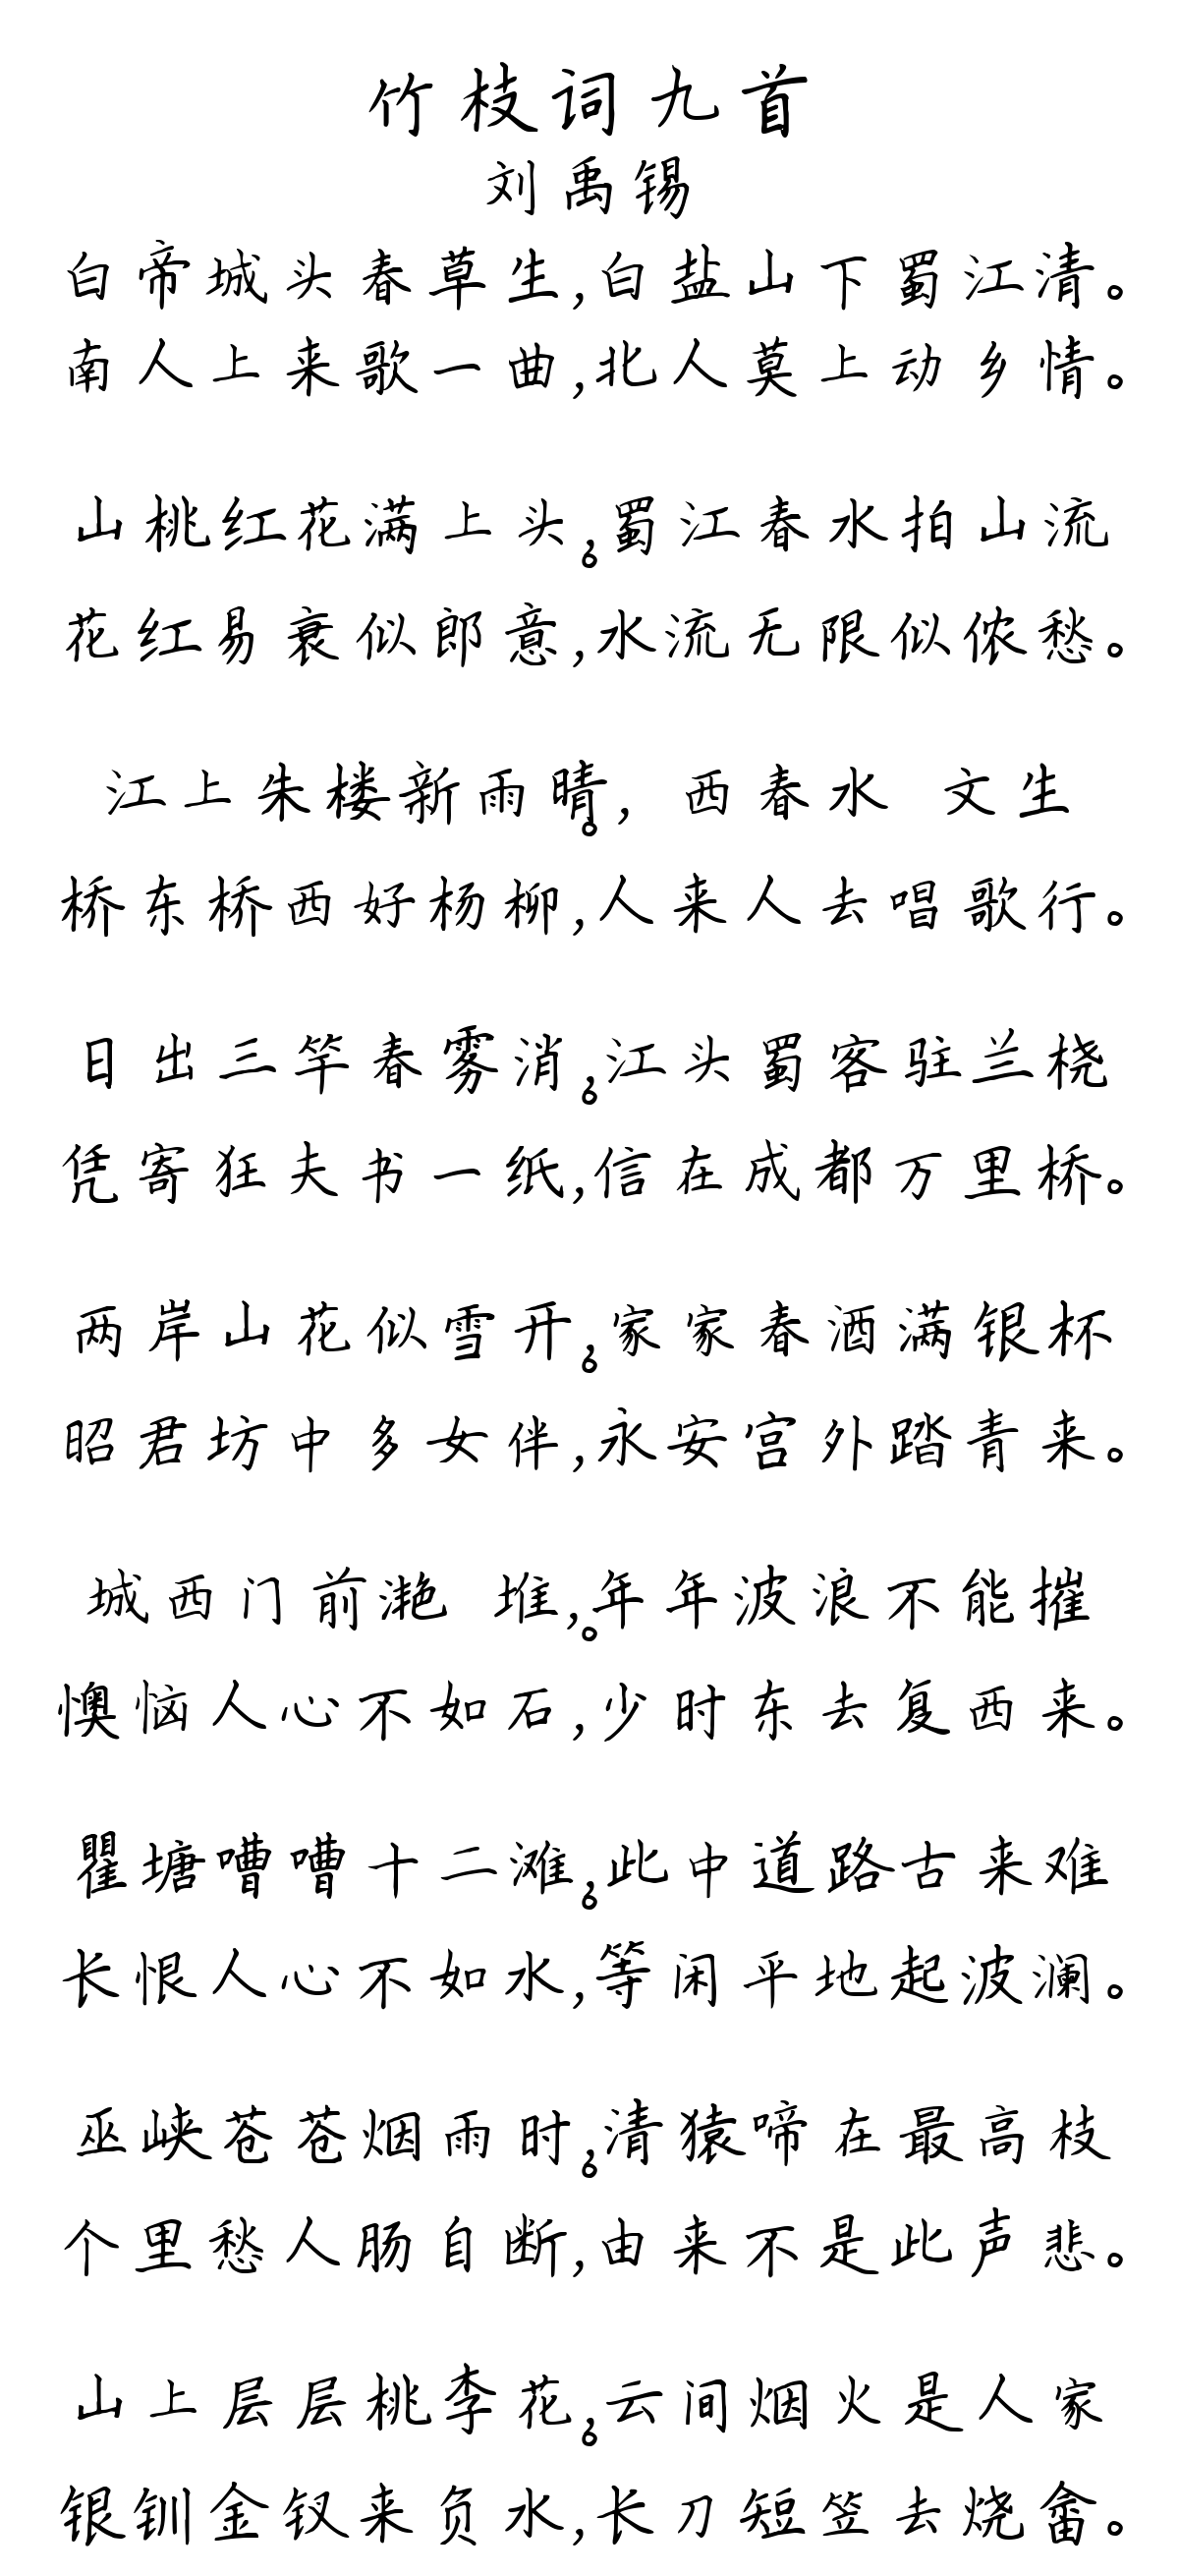 竹枝词九首
刘禹锡
白帝城头春草生,白盐山下蜀江清。
南人上来歌一曲,北人莫上动乡情。
山桃红花满上头,蜀江春水拍山流
。
花红易衰似郎意,水流无限似侬愁。
江上朱楼新雨晴, 西春水 文生
。
桥东桥西好杨柳,人来人去唱歌行。
日出三竿春雾消,江头蜀客驻兰桡
。
凭寄狂夫书一纸,信在成都万里桥。
两岸山花似雪开,家家春酒满银杯
。
昭君坊中多女伴,永安宫外踏青来。
城西门前滟 堆,年年波浪不能摧
。
懊恼人心不如石,少时东去复西来。
瞿塘嘈嘈十二滩,此中道路古来难
。
长恨人心不如水,等闲平地起波澜。
巫峡苍苍烟雨时,清猿啼在最高枝
。
个里愁人肠自断,由来不是此声悲。
山上层层桃李花,云间烟火是人家
。
银钏金钗来负水,长刀短笠去烧畬。